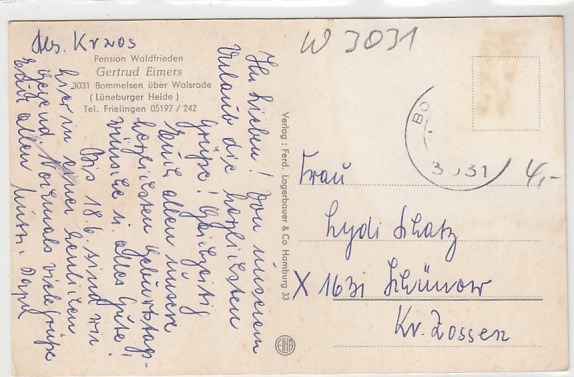 W 3031
Pension Waldfrieden
Gertrud Eimers
3031 Bommelsen über Walsrode
( Lüneburger Heide )
Tel. Frielingen 05197 / 242
Ihr Lieben! Von unserem
Urlaub die herzlichsten
Grüße! Gleichzeitig
Euch allen unsere
herzlichsten Geburtstags-
wünsche u. alles Gute!
Bis 18.6. sind wir
hier in einer herrlichen
Gegend. Nochmals viele Grüße
Euch allen
Verlag : Ferd. Lagerbauer & Co Hamburg 33
BO
3031
4,-
Frau
Lydi Schatz
X 1631 Schünow
Kr. Zossen